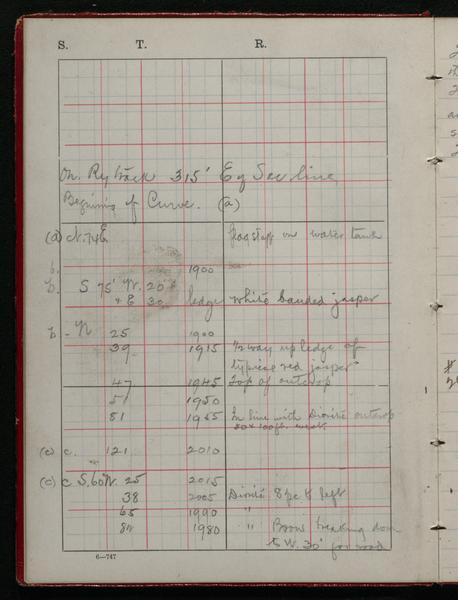 S. T. R.
On Ry track 315' E of Sec line
Beginning of Curve. (a)
(a) N. 74 E flag staff on water tank
b. 1900
b. S 75' W. 20'
+ E 30 ledge white banded jasper
b - N 25 1900
39 1915 1/2 way up ledge of
typical red jasper
47 1945 Top of outcrop
51 1950
81 1955 In line with Diorite outcrop
50 x 100 ft. west.
(c) c. 121 2010
(c) c S. 60 W. 25 2015
38 2005 Diorite 8 pc & left
65 1990 "
84 1980 " Brow breaking down
to W. 30' for road
6-747